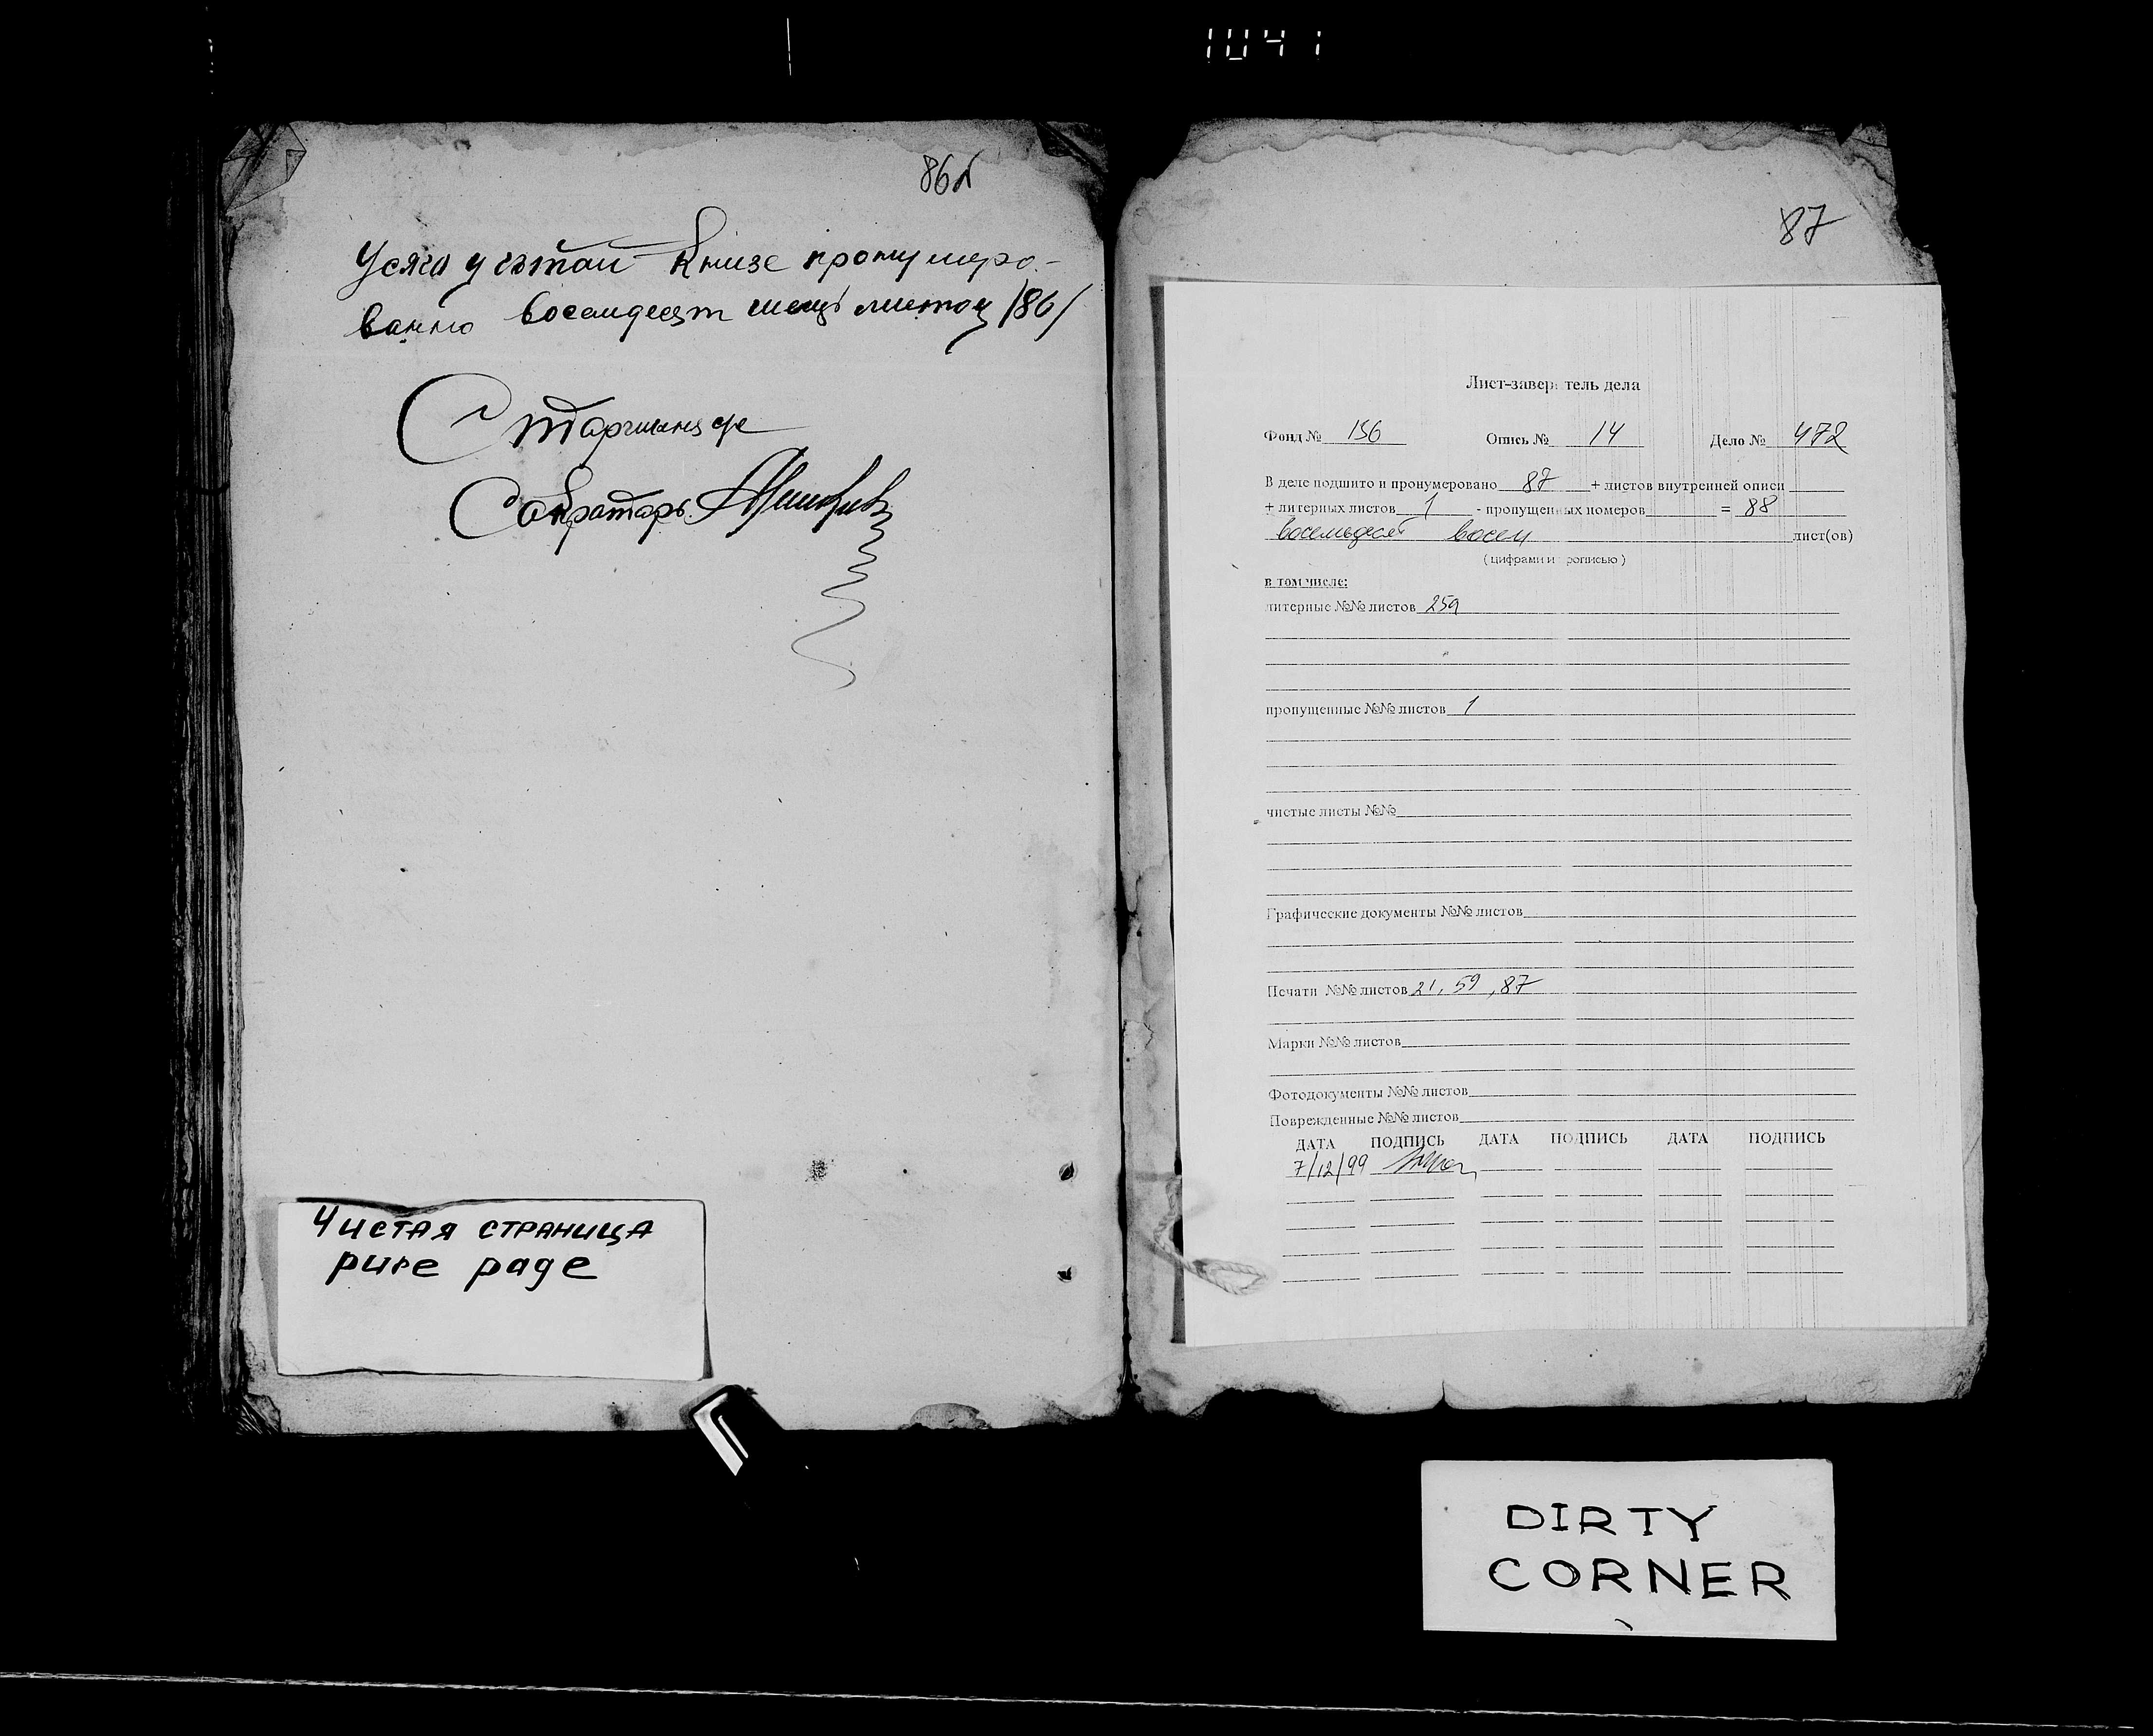 1041
86
Усяго у гэтай Книзе пронумеро-
ванно восемдесят шець листоу /86/
Сакратарь
Чистая страница
pure page
87
Лист-заверитель дела
Фонд № 156 Опись № 14 Дело № 472
В деле подшито и пронумеровано 87 + листов внутренней описи
+ литерных листов 1 - пропущенных номеров = 88
восемьдесят восем лист(ов)
(цифрами и прописью)
в том числе:
литерные №№ листов 25а
пропущенные №№ листов 1
чистые листы №№
Графические документы №№ листов
Печати №№ листов 21, 59, 87
Марки №№ листов
Фотодокументы №№ листов
Поврежденные №№ листов
ДАТА ПОДПИСЬ ДАТА ПОДПИСЬ ДАТА ПОДПИСЬ
7/12/99
DIRTY
CORNER